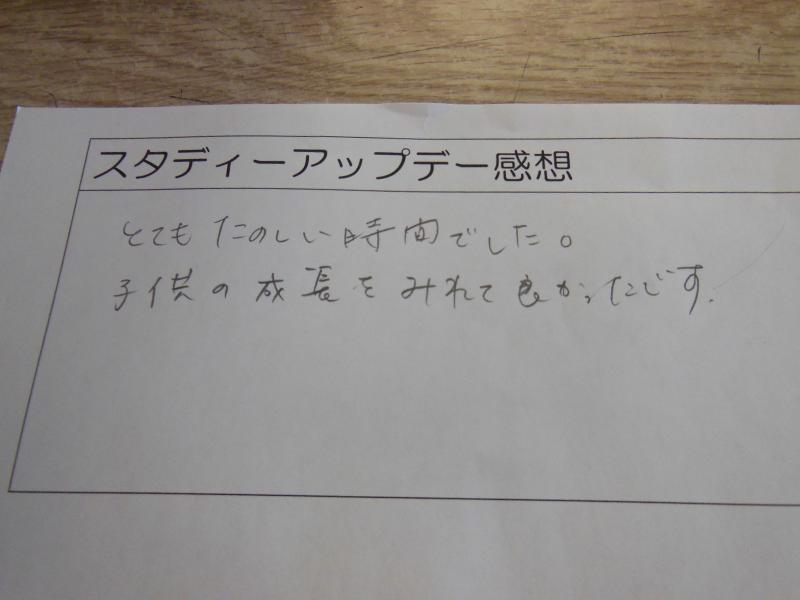 スタディーアップデー感想
とてもたのしい時間でした。
子供の成長をみれて良かったです.